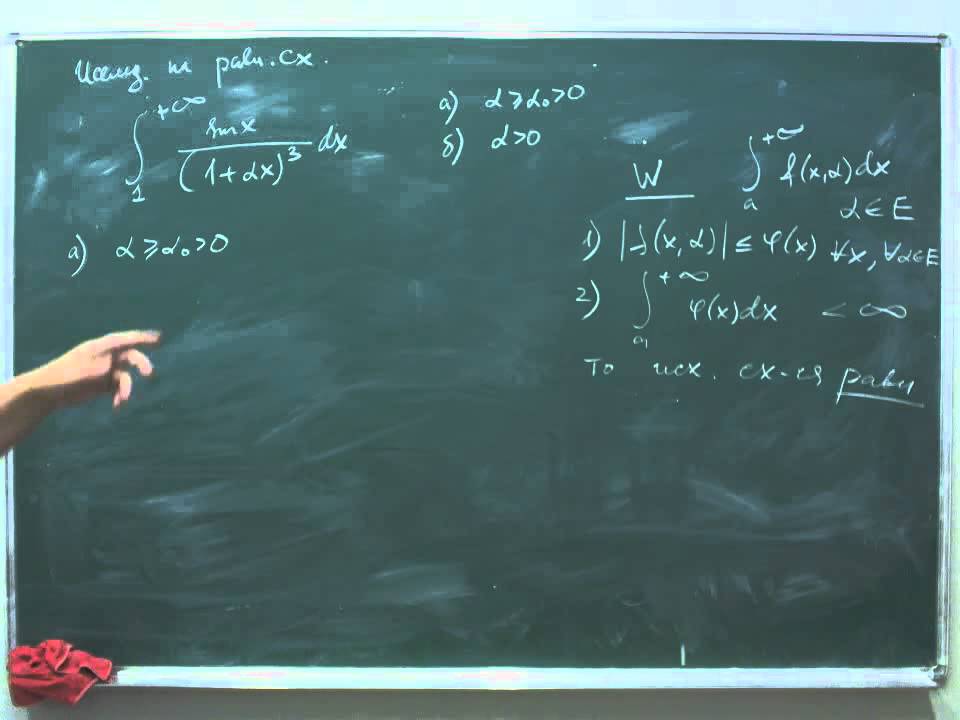 Исслед. на равн. сх.
∫₁^{+∞} sin x / (1+αx)³ dx
а) α ≥ α₀ > 0
б) α > 0
а) α ≥ α₀ > 0
W ∫ₐ^{+∞} f(x,α)dx
α ∈ E
1) |f(x,α)| ≤ φ(x) ∀x, ∀α∈E
2) ∫_{a₁}^{+∞} φ(x)dx < ∞
То исх. сх-ся равн